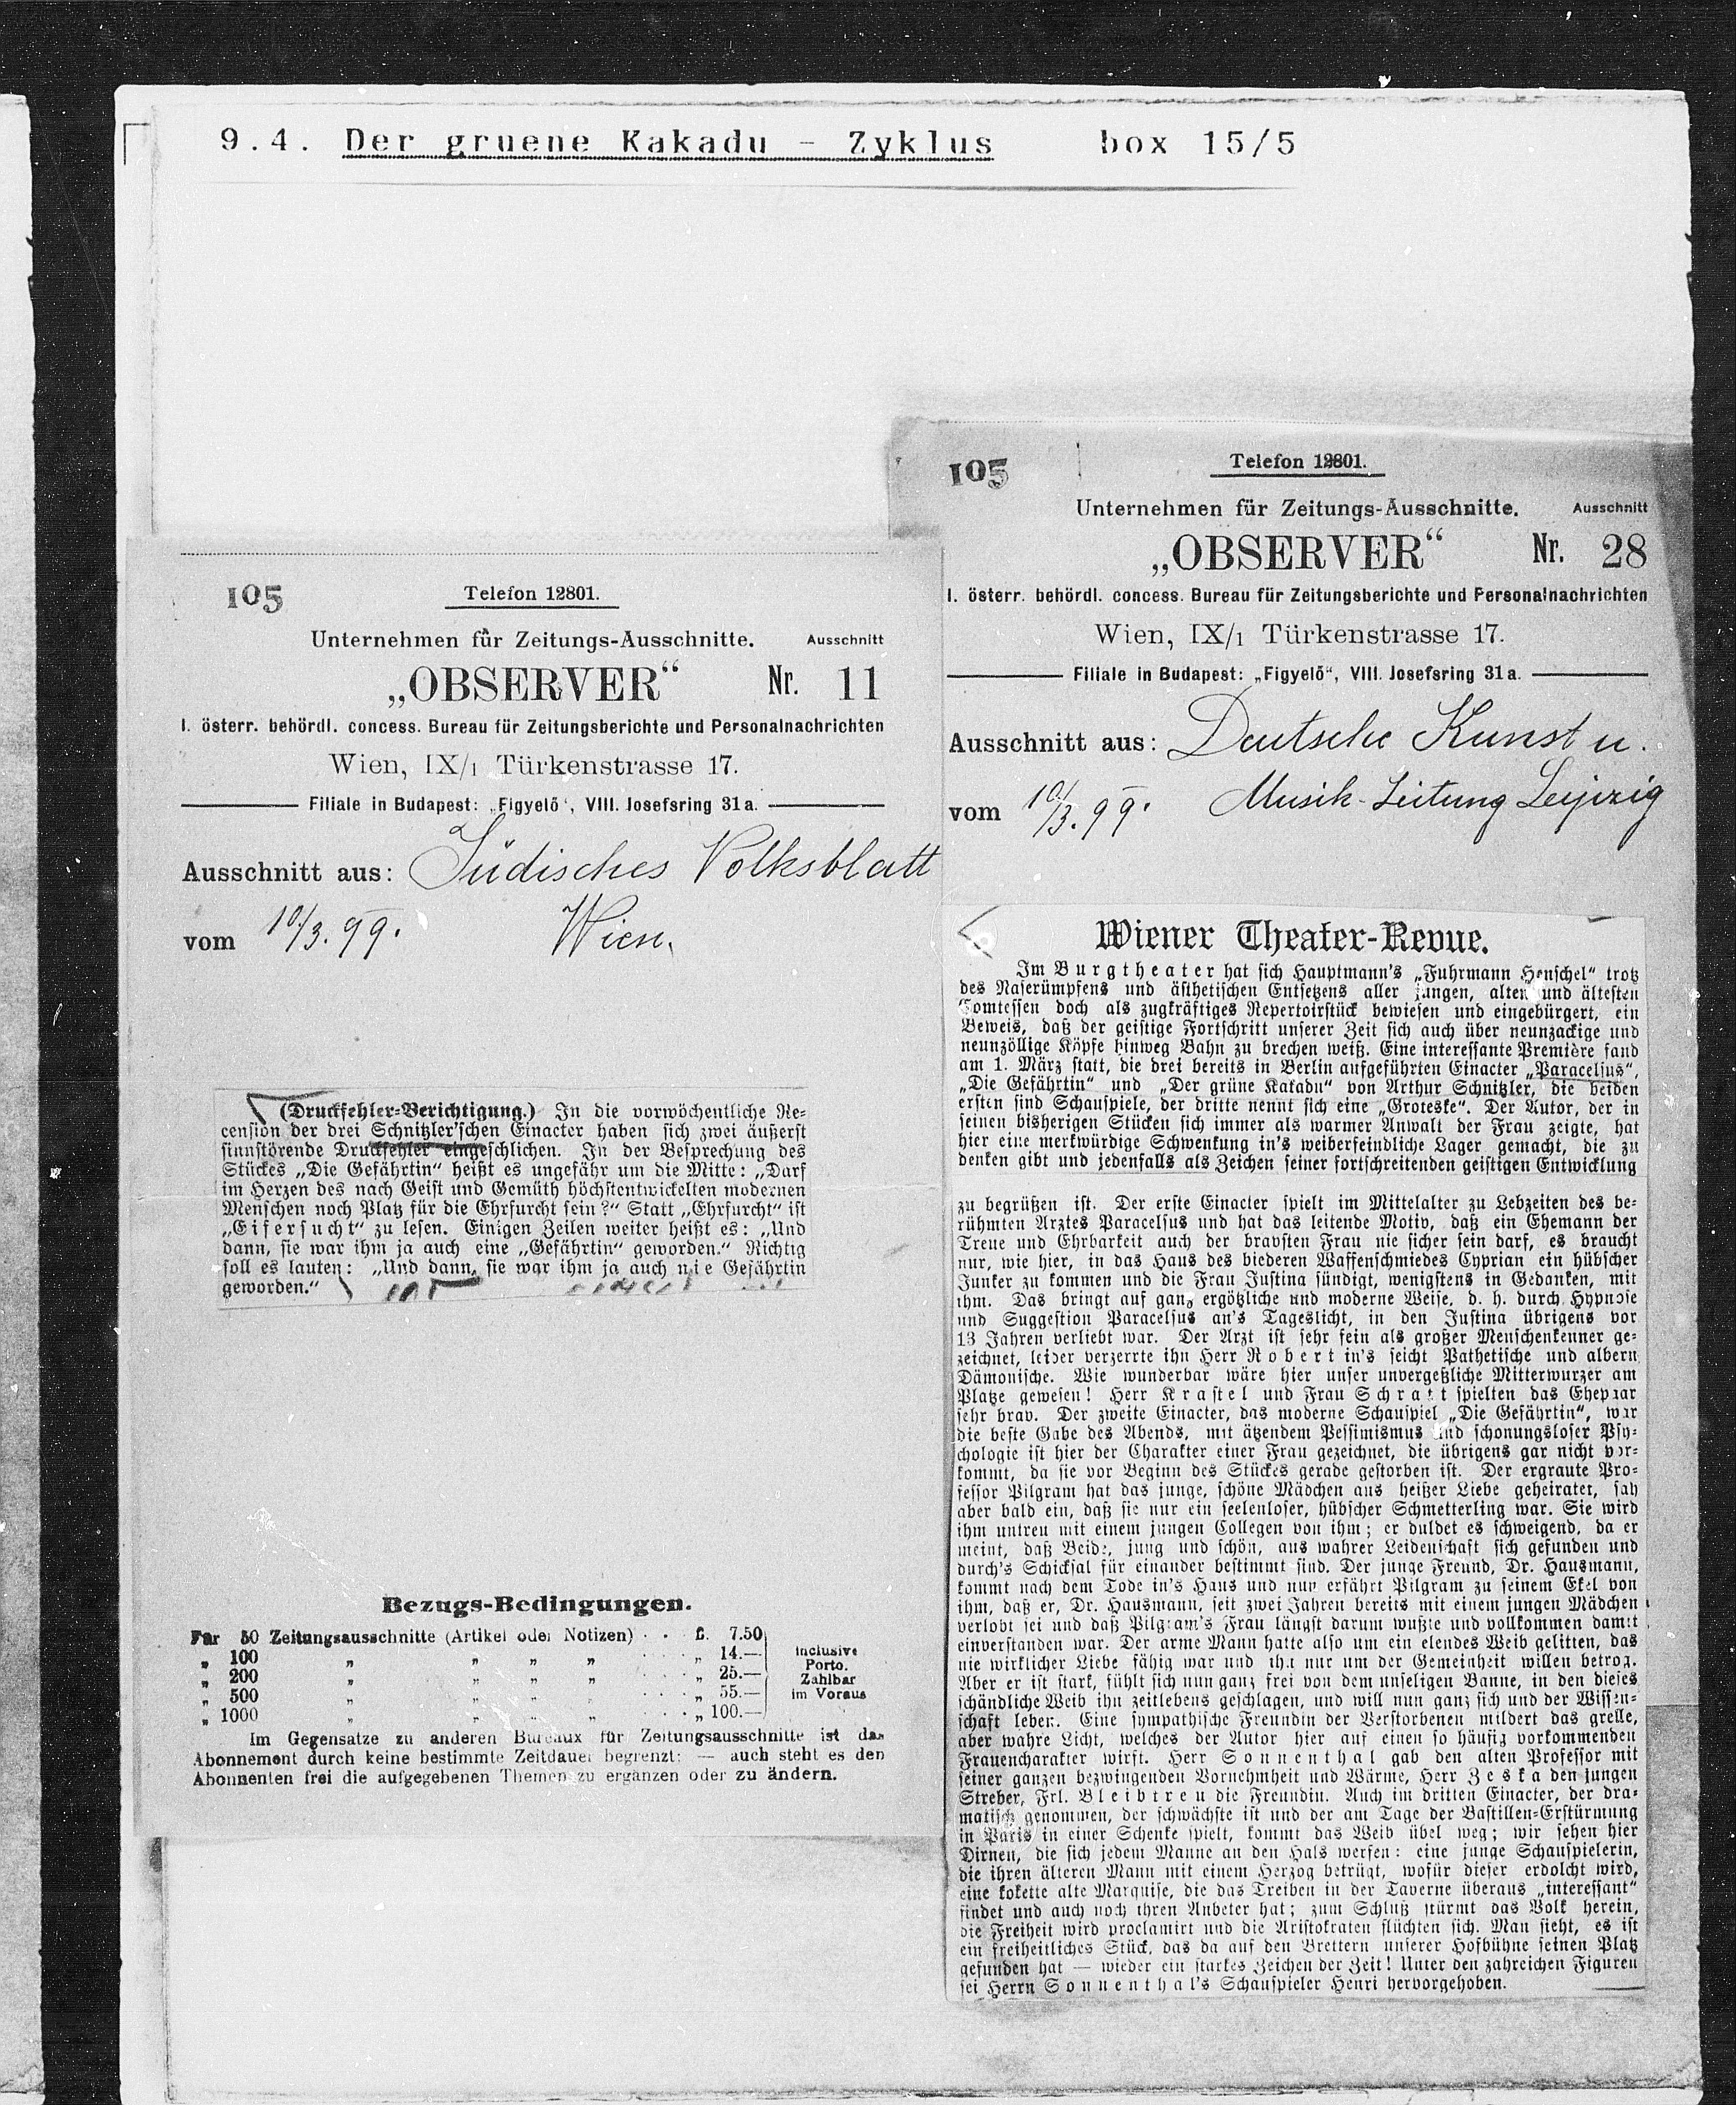 9.4. Der gruene Kakadu - Zyklus box 15/5
105
Telefon 12801.
Unternehmen für Zeitungs-Ausschnitte. Ausschnitt
„OBSERVER“ Nr. 11
I. österr. behördl. concess. Bureau für Zeitungsberichte und Personalnachrichten
Wien, IX/1 Türkenstrasse 17.
Filiale in Budapest: „Figyelő“, VIII. Josefsring 31a.
Ausschnitt aus: Jüdisches Volksblatt
vom 10/3. 99. Wien.
(Druckfehler-Berichtigung.) In die vorwöchentliche Re-
cension der drei Schnitzler'schen Einacter haben sich zwei äußerst
sinnstörende Druckfehler eingeschlichen. In der Besprechung des
Stückes „Die Gefährtin“ heißt es ungefähr um die Mitte: „Darf
im Herzen des nach Geist und Gemüth höchstentwickelten modernen
Menschen noch Platz für die Ehrfurcht sein?“ Statt „Ehrfurcht“ ist
„Eifersucht“ zu lesen. Einigen Zeilen weiter heißt es: „Und
dann, sie war ihm ja auch eine „Gefährtin“ geworden.“ Richtig
soll es lauten: „Und dann, sie war ihm ja auch nie Gefährtin
geworden.“
Bezugs-Bedingungen.
Für 50 Zeitungsausschnitte (Artikel oder Notizen) . . fl. 7.50
„ 100 „ „ „ „ . . . . „ 14.—
„ 200 „ „ „ „ . . . . „ 25.—
„ 500 „ „ „ „ . . . . „ 55.—
„ 1000 „ „ „ „ . . . . „ 100.—
inclusive
Porto.
Zahlbar
im Voraus
Im Gegensatze zu anderen Bureaux für Zeitungsausschnitte ist das
Abonnement durch keine bestimmte Zeitdauer begrenzt; — auch steht es den
Abonnenten frei die aufgegebenen Themen zu ergänzen oder zu ändern.
105
Telefon 12801.
Unternehmen für Zeitungs-Ausschnitte. Ausschnitt
„OBSERVER“ Nr. 28
I. österr. behördl. concess. Bureau für Zeitungsberichte und Personalnachrichten
Wien, IX/1 Türkenstrasse 17.
Filiale in Budapest: „Figyelő“, VIII. Josefsring 31a.
Ausschnitt aus: Deutsche Kunst u.
vom 10/3. 99. Musik-Zeitung Leipzig
Wiener Theater-Revue.
Im Burgtheater hat sich Hauptmann's „Fuhrmann Henschel“ trotz
des Naserümpfens und ästhetischen Entsetzens aller jungen, alten und ältesten
Comtessen doch als zugkräftiges Repertoirstück bewiesen und eingebürgert, ein
Beweis, daß der geistige Fortschritt unserer Zeit sich auch über neunzackige und
neunzöllige Köpfe hinweg Bahn zu brechen weiß. Eine interessante Première fand
am 1. März statt, die drei bereits in Berlin aufgeführten Einacter „Paracelsus“,
„Die Gefährtin“ und „Der grüne Kakadu“ von Arthur Schnitzler, die beiden
ersten sind Schauspiele, der dritte nennt sich eine „Groteske“. Der Autor, der in
seinen bisherigen Stücken sich immer als warmer Anwalt der Frau zeigte, hat
hier eine merkwürdige Schwenkung in's weiberfeindliche Lager gemacht, die zu
denken gibt und jedenfalls als Zeichen seiner fortschreitenden geistigen Entwicklung
zu begrüßen ist. Der erste Einacter spielt im Mittelalter zu Lebzeiten des be-
rühmten Arztes Paracelsus und hat das leitende Motiv, daß ein Ehemann der
Treue und Ehrbarkeit auch der bravsten Frau nie sicher sein darf, es braucht
nur, wie hier, in das Haus des biederen Waffenschmiedes Cyprian ein hübscher
Junker zu kommen und die Frau Justina sündigt, wenigstens in Gedanken, mit
ihm. Das bringt auf ganz ergötzliche und moderne Weise, d. h. durch Hypnose
und Suggestion Paracelsus an's Tageslicht, in den Justina übrigens vor
13 Jahren verliebt war. Der Arzt ist sehr fein als großer Menschenkenner ge-
zeichnet, leider verzerrte ihn Herr Robert in's seicht Pathetische und albern
Dämonische. Wie wunderbar wäre hier unser unvergeßliche Mitterwurzer am
Platze gewesen! Herr Krastel und Frau Schratt spielten das Ehepaar
sehr brav. Der zweite Einacter, das moderne Schauspiel „Die Gefährtin“, war
die beste Gabe des Abends, mit ätzendem Pessimismus und schonungsloser Psy-
chologie ist hier der Charakter einer Frau gezeichnet, die übrigens gar nicht vor-
kommt, da sie vor Beginn des Stückes gerade gestorben ist. Der ergraute Pro-
fessor Pilgram hat das junge, schöne Mädchen aus heißer Liebe geheiratet, sah
aber bald ein, daß sie nur ein seelenloser, hübscher Schmetterling war. Sie wird
ihm untreu mit einem jungen Collegen von ihm; er duldet es schweigend, da er
meint, daß Beide, jung und schön, aus wahrer Leidenschaft sich gefunden und
durch's Schicksal für einander bestimmt sind. Der junge Freund, Dr. Hausmann,
kommt nach dem Tode in's Haus und nun erfährt Pilgram zu seinem Ekel von
ihm, daß er, Dr. Hausmann, seit zwei Jahren bereits mit einem jungen Mädchen
verlobt sei und daß Pilgram's Frau längst darum wußte und vollkommen damit
einverstanden war. Der arme Mann hatte also um ein elendes Weib gelitten, das
nie wirklicher Liebe fähig war und ihn nur um der Gemeinheit willen betrog.
Aber er ist stark, fühlt sich nun ganz frei von dem unseligen Banne, in den dieses
schändliche Weib ihn zeitlebens geschlagen, und will nun ganz sich und der Wissen-
schaft leben. Eine sympathische Freundin der Verstorbenen mildert das grelle,
aber wahre Licht, welches der Autor hier auf einen so häufig vorkommenden
Frauencharakter wirft. Herr Sonnenthal gab den alten Professor mit
seiner ganzen bezwingenden Vornehmheit und Wärme, Herr Zeska den jungen
Streber, Frl. Bleibtreu die Freundin. Auch im dritten Einacter, der dra-
matisch genommen, der schwächste ist und der am Tage der Bastillen-Erstürmung
in Paris in einer Schenke spielt, kommt das Weib übel weg; wir sehen hier
Dirnen, die sich jedem Manne an den Hals werfen: eine junge Schauspielerin,
die ihren älteren Mann mit einem Herzog betrügt, wofür dieser erdolcht wird,
eine kokette alte Marquise, die das Treiben in der Taverne überaus „interessant“
findet und auch noch ihren Anbeter hat; zum Schluß stürmt das Volk herein,
die Freiheit wird proclamirt und die Aristokraten flüchten sich. Man sieht, es ist
ein freiheitliches Stück, das da auf den Brettern unserer Hofbühne seinen Platz
gefunden hat — wieder ein starkes Zeichen der Zeit! Unter den zahreichen Figuren
sei Herrn Sonnenthal's Schauspieler Henri hervorgehoben.